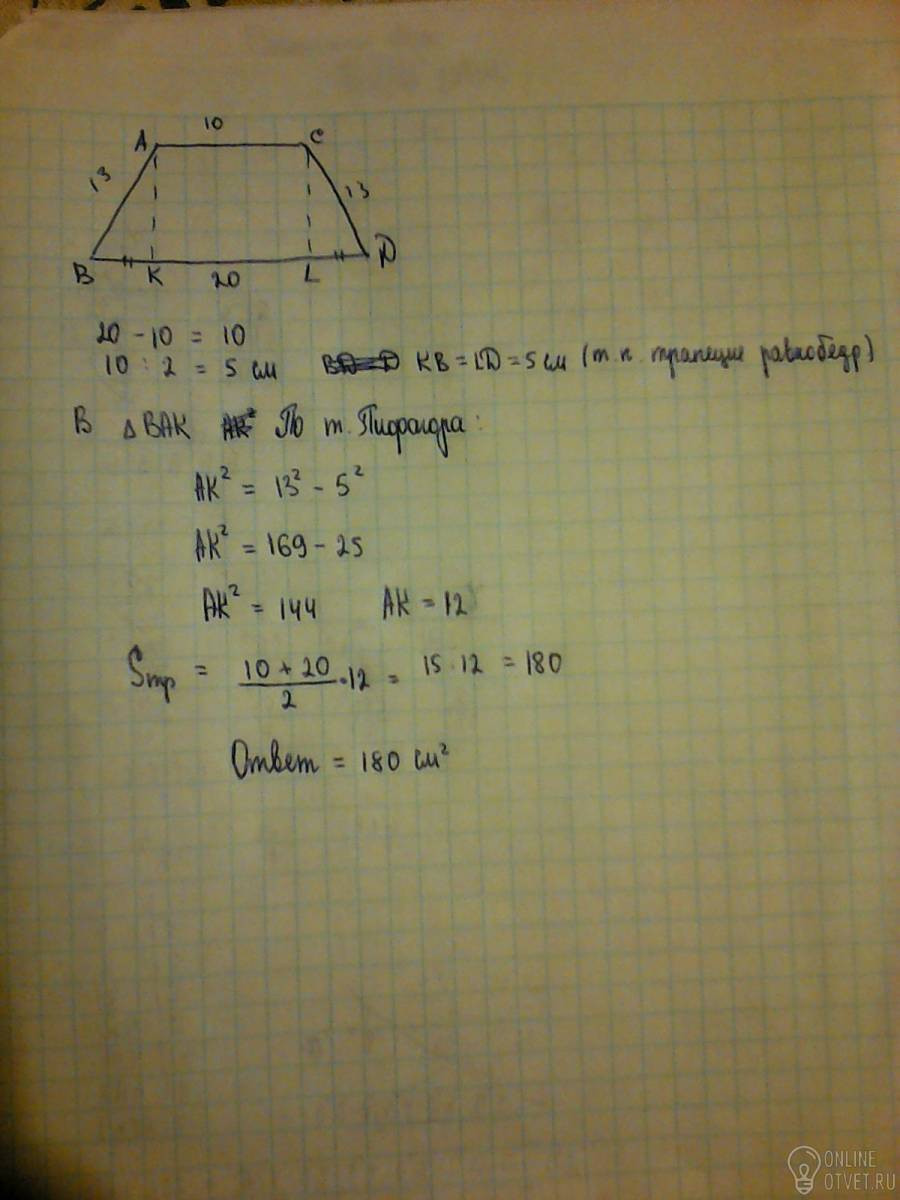 10
A C
13 13
B K 20 L D
20 - 10 = 10
10 : 2 = 5 см KB = LD = 5 см (т.к. трапеция равнобедр)
В △ BAK По т. Пифагора:
AK² = 13² - 5²
AK² = 169 - 25
AK² = 144 AK = 12
Sтр = (10 + 20)/2 · 12 = 15 · 12 = 180
Ответ = 180 см²
ONLINE
OTVET.RU